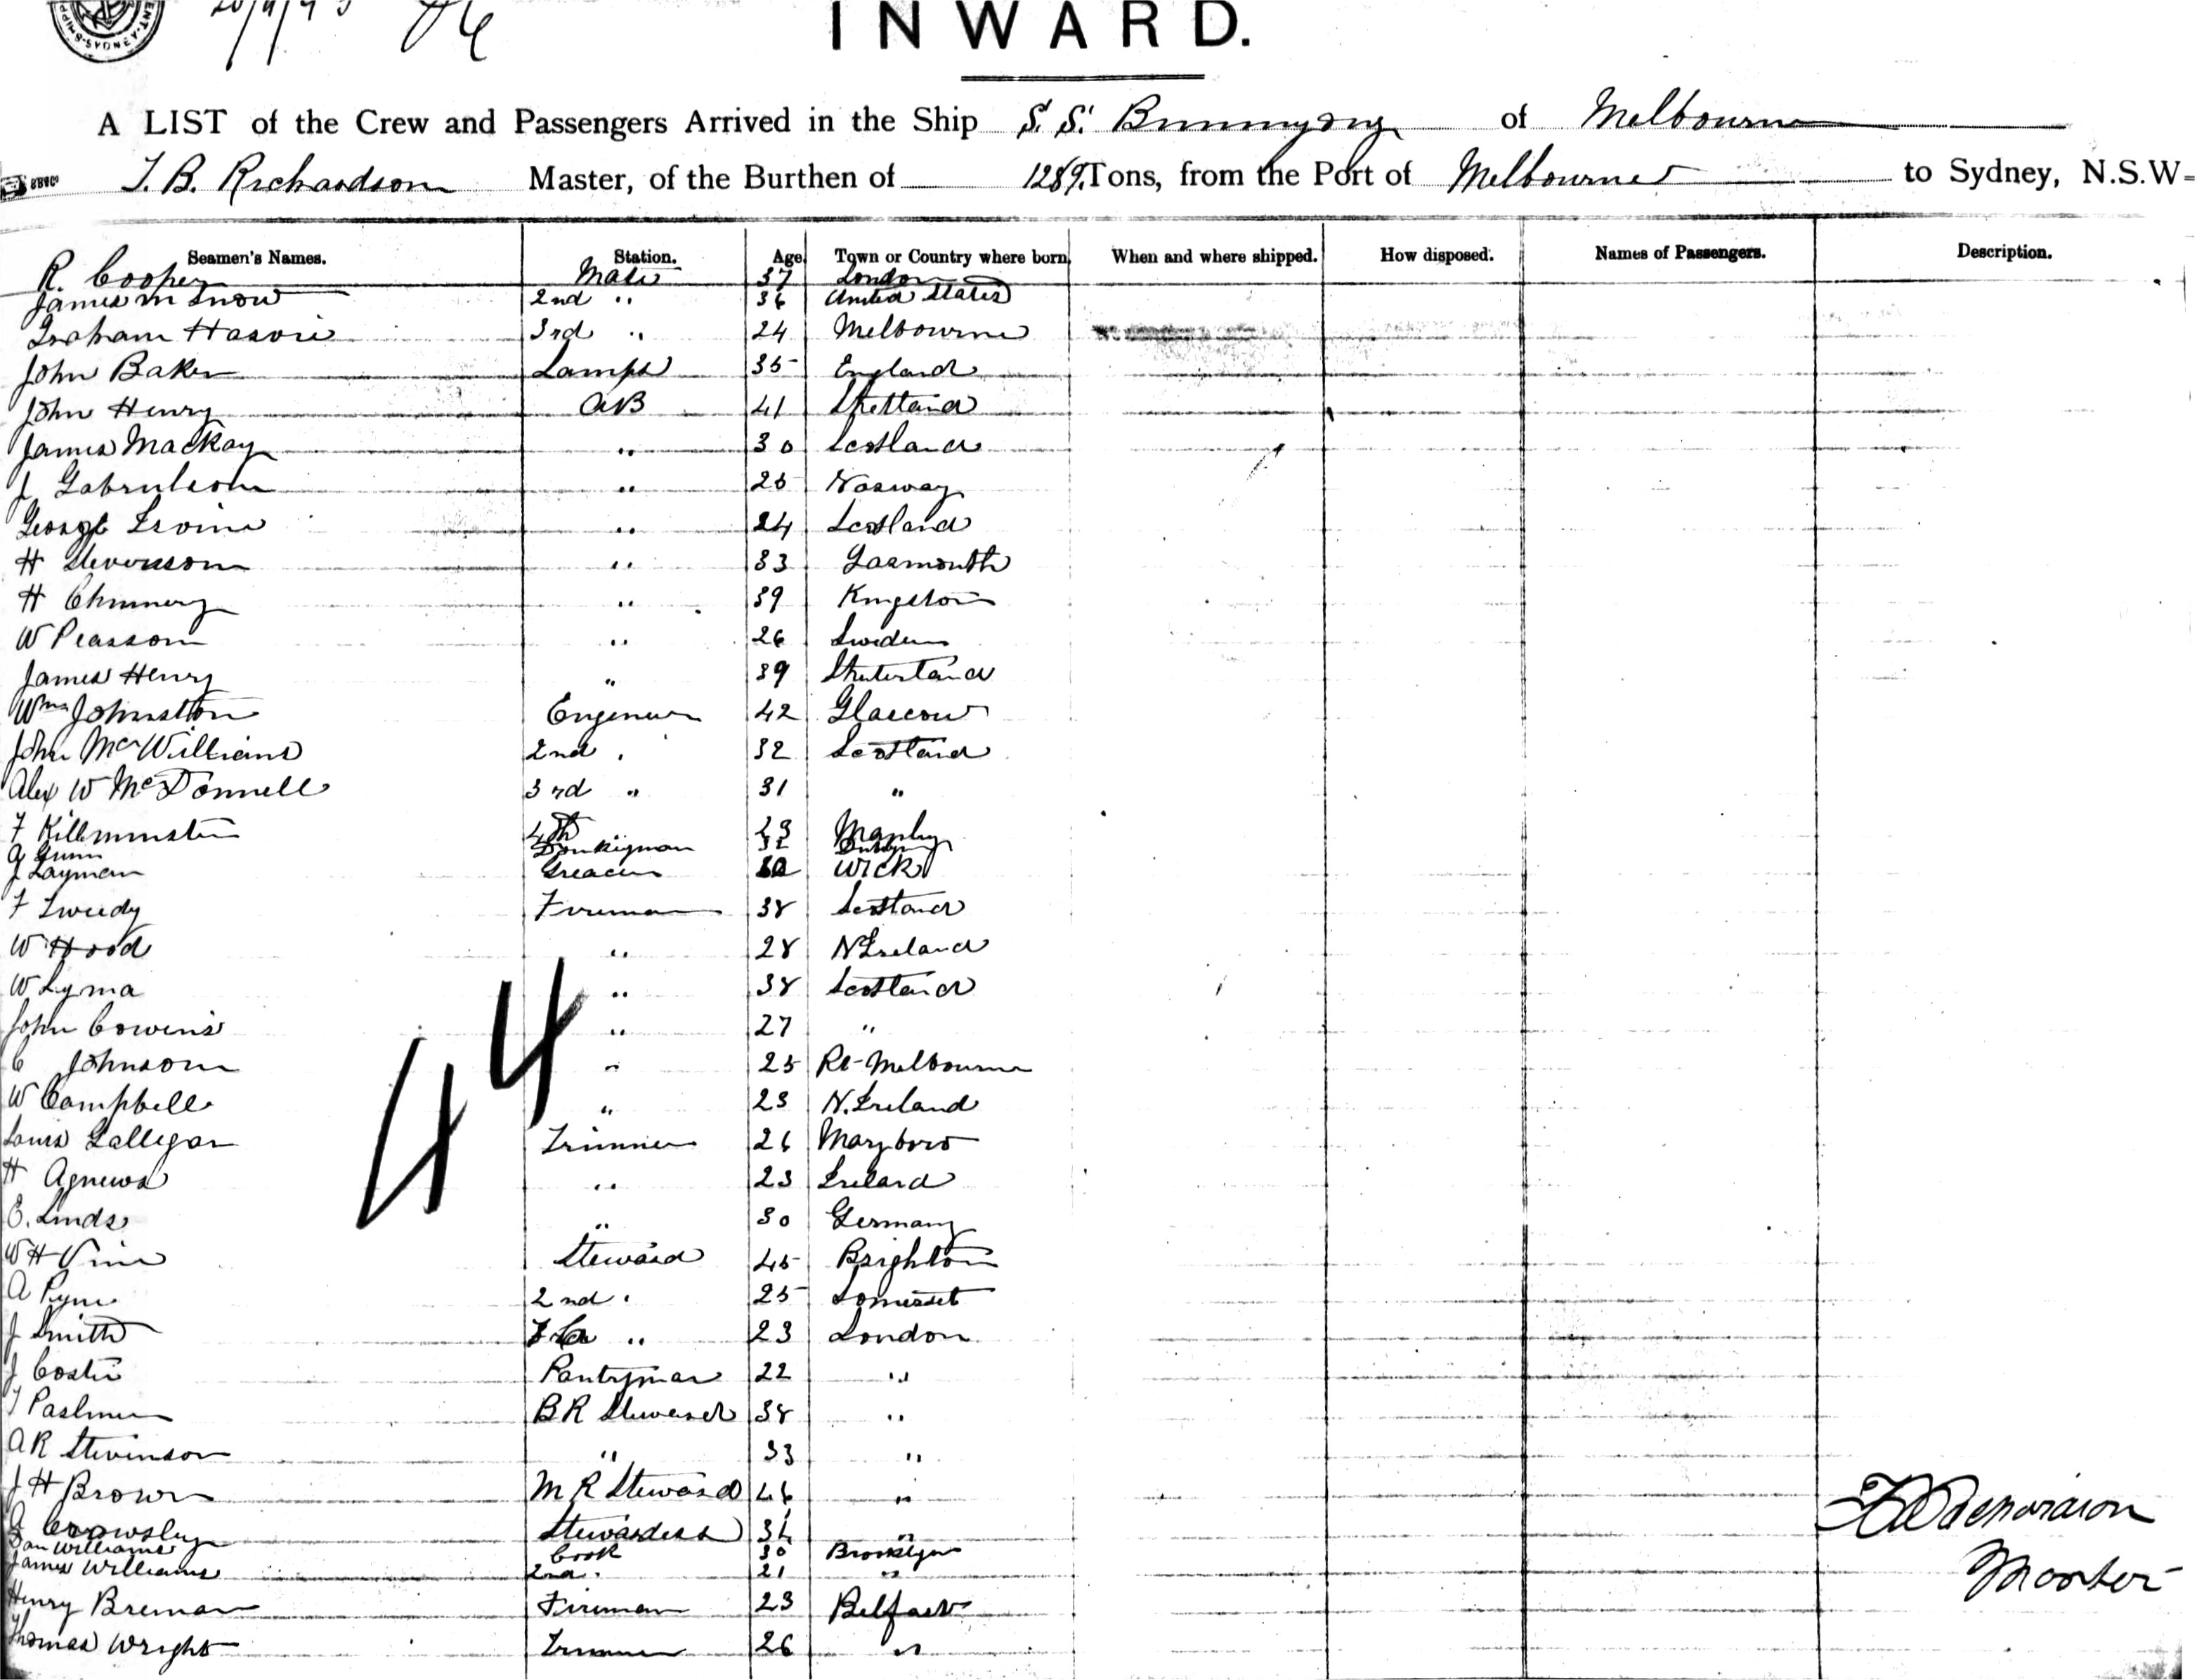 INWARD.
A LIST of the Crew and Passengers Arrived in the Ship S. S. Buninyong of Melbourne
T. B. Richardson Master, of the Burthen of 1289 Tons, from the Port of Melbourne to Sydney, N.S.W
Seamen's Names. Station. Age Town or Country where born When and where shipped. How disposed. Names of Passengers. Description.
R. Cooper Mate 37 London
James M Snow 2nd " 36 United States
Graham Harvie 3rd " 24 Melbourne
John Baker Lamps 35 England
John Henry AB 41 Shetland
James Mackay " 30 Scotland
J " 25 Norway
George Irvine " 24 Scotland
H Stevenson " 33 Yarmouth
H Chinnery " 39 Kingston
W Pearson " 26 Sweden
James Henry " 39
Wm Johnston Engineer 42 Glascow
John McWilliams 2nd " 32 Scotland
Alex W McDonnell 3rd " 31 "
F Killminster 4th Manly
A Gunn Donkeyman
J Layman Greaser Wick
F Tweedy Fireman 38 Scotland
W Hood " 28 N Ireland
W Lyma " 38 Scotland
John Cowens " 27 "
C Johnson " 25 Melbourne
W Campbell " 23 N. Ireland
Louis Galligan Trimmer 26 Maryboro
H Agnew " 23 Ireland
E. Linds " 30 Germany
44
W H Vine Steward 45 Brighton
A Pyne 2nd " 25 Somerset
J Smith " 23 London
J Coster Pantryman 22 "
BR Steward 38 "
A R Stevinson " 33 "
J H Brown M R Steward 46 "
A Crowsley Stewardess 34 "
Dan Williams Cook 30 Brooklyn
James Williams 2nd " 21 "
Henry Brenan Fireman 23 Belfast
Thomas Wright Trimmer 26 "
T B Richardson
Master